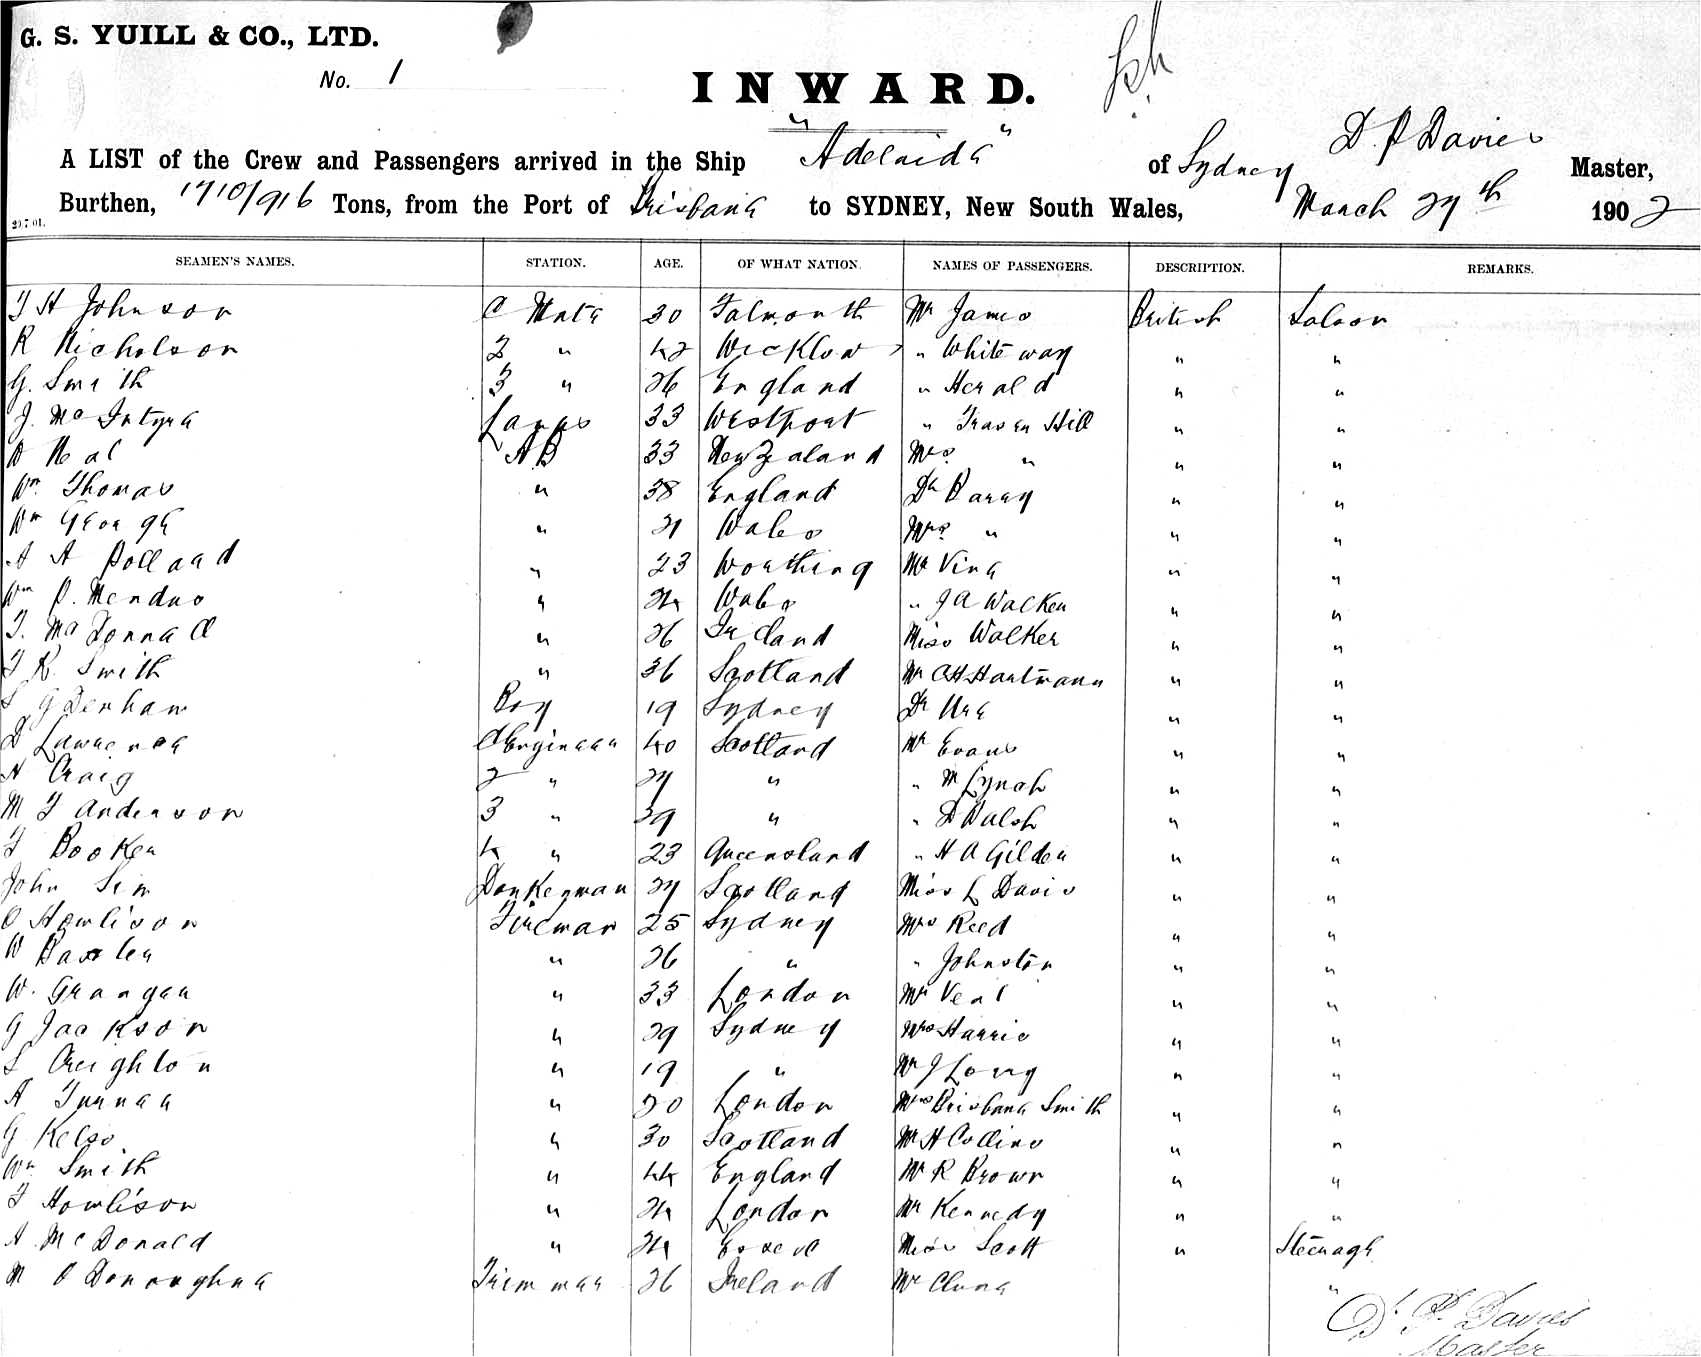 G. S. YUILL & CO., LTD.
No. 1
INWARD.
D. P Davies
A LIST of the Crew and Passengers arrived in the Ship "Adelaide" of Sydney Master,
Burthen, 1710/916 Tons, from the Port of Brisbane to SYDNEY, New South Wales, March 27th 1902
SEAMEN'S NAMES. STATION. AGE. OF WHAT NATION. NAMES OF PASSENGERS. DESCRIPTION. REMARKS.
T H Johnson C Mate 30 Falmouth Mr James British Saloon
R Nicholson 2 " 42 Wicklow " Whiteway " "
G. Smith 3 " 26 England " Herald " "
J. McIntyre Lamps 33 Westport " Fraser Hill " "
D Neal AB 33 New Zealand Mrs " " "
Wm Thomas " 38 England Dr Barry " "
Wm George " 21 Wales Mrs " " "
A A Pollard " 23 Worthing Mr Vine " "
Wm P. Mendus " 24 Wales " J A Walker " "
T. McDonnell " 26 Ireland Miss Walker " "
T R Smith " 36 Scotland Mr C H Hartmann " "
S G Denham Boy 19 Sydney Dr Ure " "
D Lawrence C Engineer 40 Scotland Mr Evans " "
A Craig 2 " 27 " " M Lynch " "
M T Anderson 3 " 29 " " D Walsh " "
T Booker 4 " 23 Queensland " H A Gilder " "
John Sim Donkeyman 27 Scotland Miss L Davis " "
O Howlison Fireman 25 Sydney Mrs Reed " "
W Baxter " 26 " " Johnston " "
W. Granger " 33 London Mr Veal " "
G Jackson " 29 Sydney Mrs Harris " "
S Creighton " 19 " Mr J Long " "
A Turner " 20 London Mrs Brisbane Smith " "
G Kelso " 30 Scotland Mr H Collins " "
Wm Smith " 44 England Mr R Brown " "
T Howlison " 24 London Mr Kennedy " "
A McDonald " 24 Essex Miss Scott " Steerage
M O Donoghue Trimmer 26 Ireland Mr Clune "
D. P. Davies
Master
20.7.01.